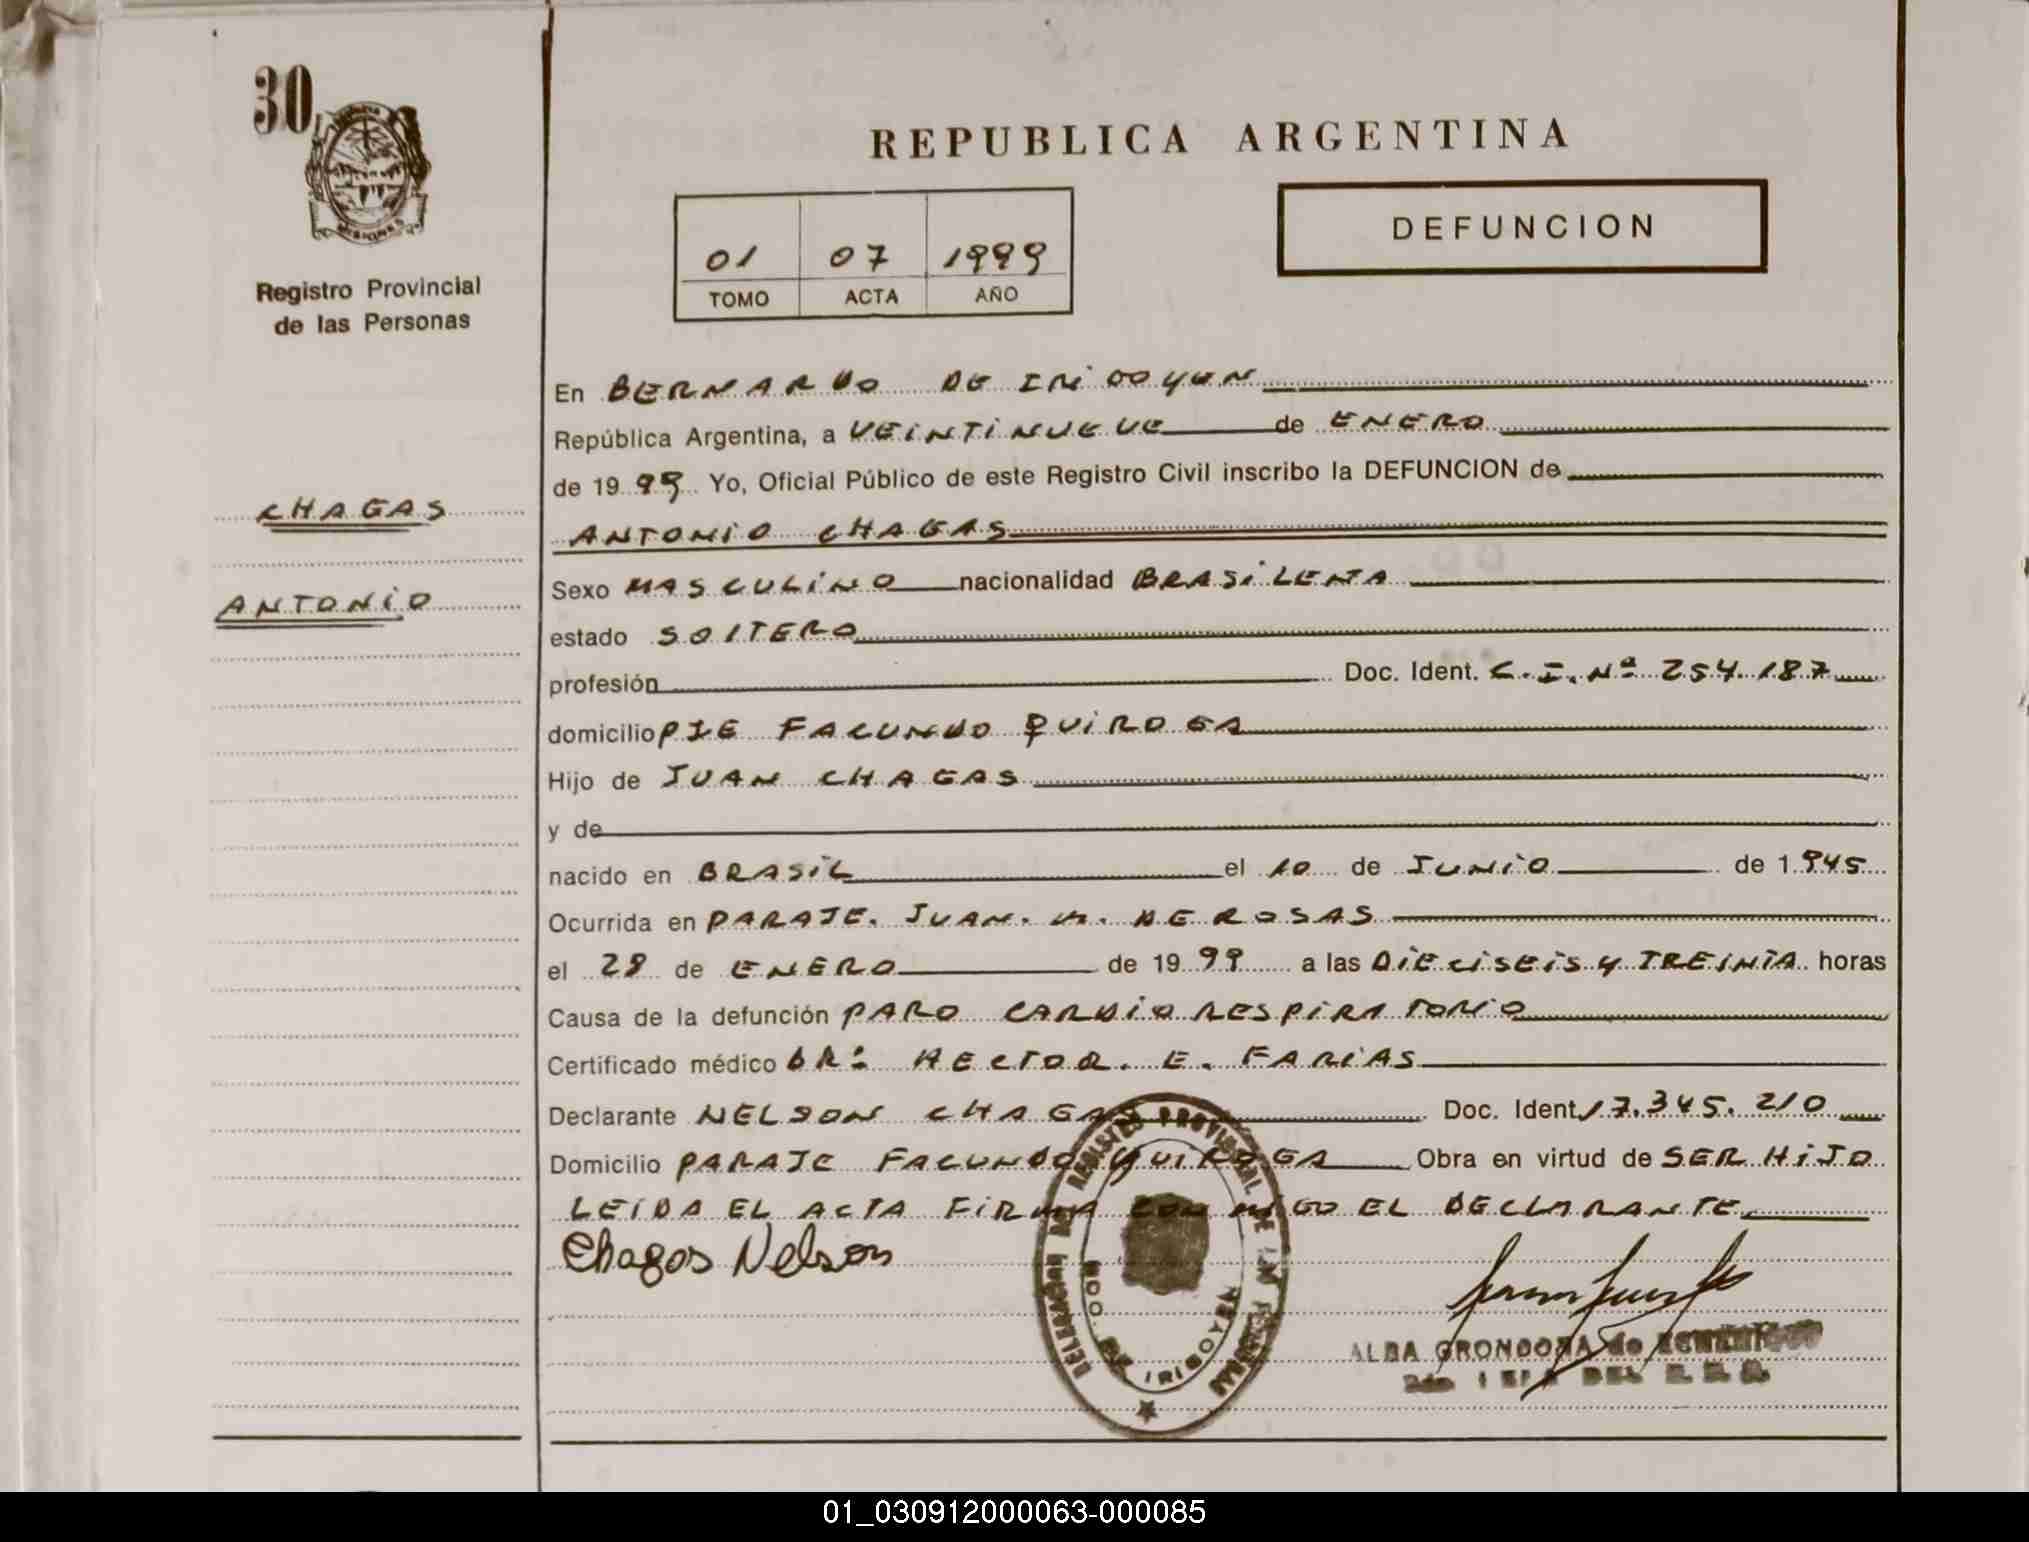 30
MISIONES
Registro Provincial
de las Personas
CHAGAS
ANTONIO
REPUBLICA ARGENTINA
01 07 1999
TOMO ACTA AÑO
DEFUNCION
En BERNARDO DE IRIGOYEN
República Argentina, a VEINTINUEVE de ENERO
de 1999 Yo, Oficial Público de este Registro Civil inscribo la DEFUNCION de
ANTONIO CHAGAS
Sexo MASCULINO nacionalidad BRASILEÑA
estado SOLTERO
profesión Doc. Ident. C.I. Nº 254.187
domicilio PJE FACUNDO QUIROGA
Hijo de JUAN CHAGAS
y de
nacido en BRASIL el 10 de JUNIO de 1.945
Ocurrida en PARAJE. JUAN. M. DE ROSAS
el 28 de ENERO de 1999 a las DIECISEIS Y TREINTA horas
Causa de la defunción PARO CARDIO RESPIRATORIO
Certificado médico DR: HECTOR. E. FARIAS
Declarante NELSON CHAGAS Doc. Ident 17.345.210
Domicilio PARAJE FACUNDO QUIROGA Obra en virtud de SER HIJO
LEIDA EL ACTA FIRMA CONMIGO EL DECLARANTE.
Chagas Nelson
DELEGACION DEL REGISTRO PROVINCIAL DE LAS PERSONAS
BDO. DE IRIGOYEN
ALBA GRONDONA de
DEL R.P.P.
01_030912000063-000085